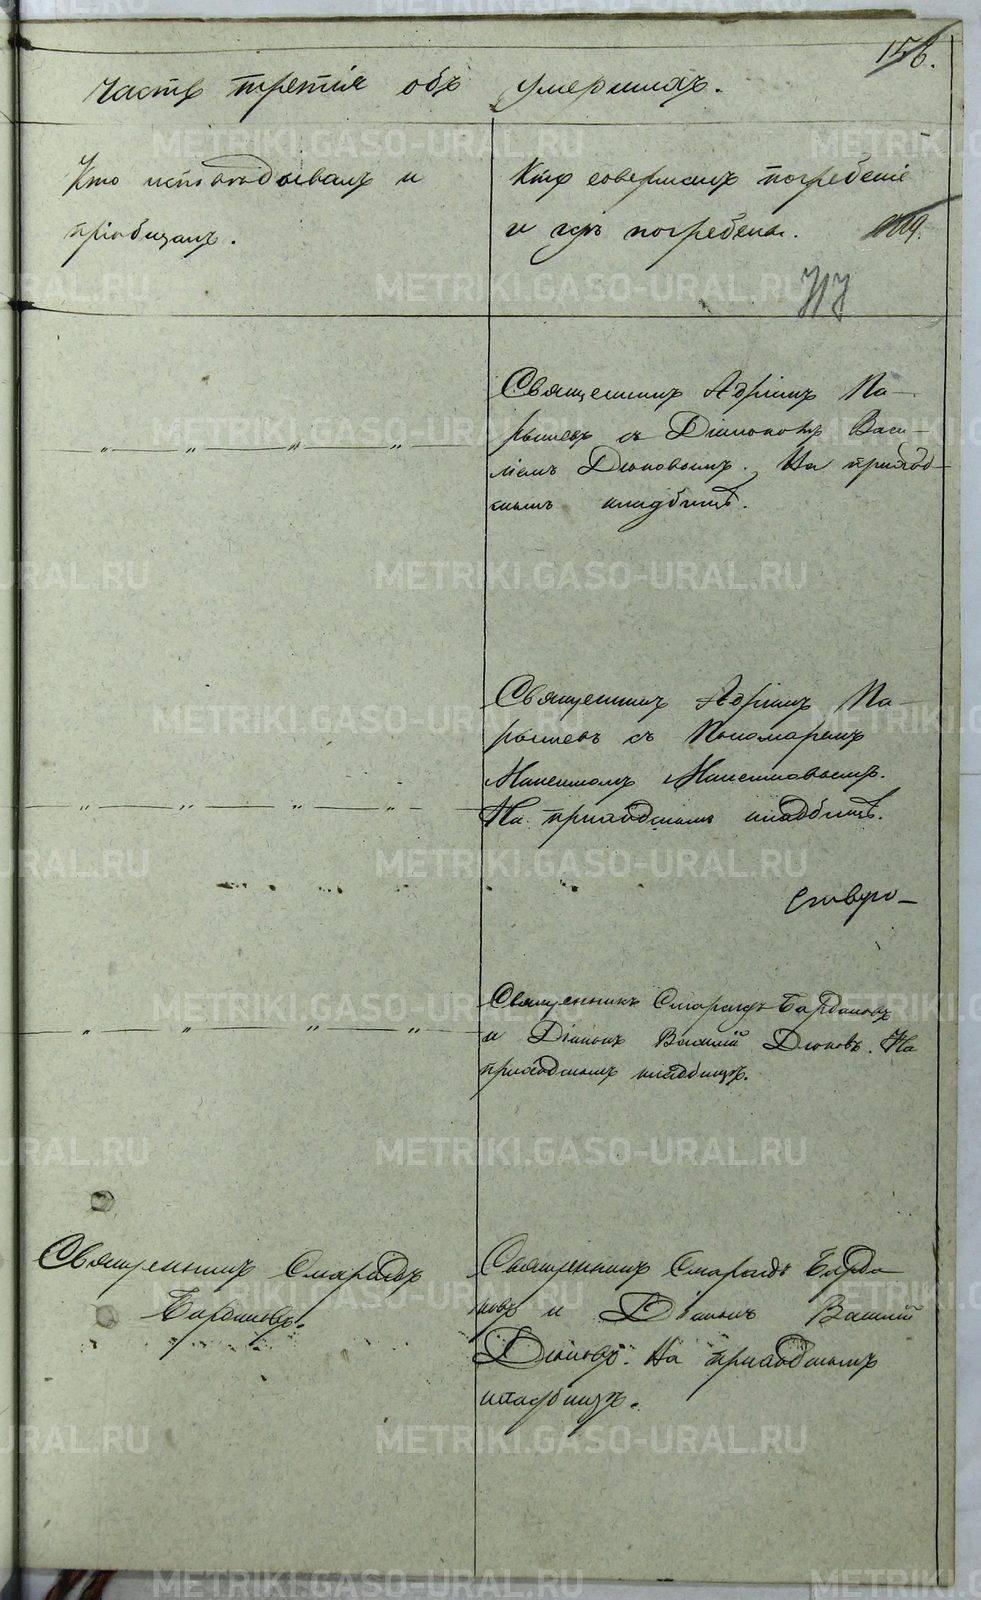 156.
Часть третія объ умершихъ.
Кто исповѣдывалъ и
пріобщалъ.
Кто совершилъ погребеніе
и гдѣ погребены.
Священникъ Адріанъ Па-
рышевъ съ Діакономъ Васи-
ліемъ Дюковымъ. На приход-
скомъ кладбищѣ.
Священникъ Адріанъ Па-
рышевъ съ Пономаремъ
Максимомъ Максимовымъ.
На приходскомъ кладбищѣ.
Священникъ Смарагдъ Бардановъ
и Діаконъ Василій Дюковъ. На
приходскомъ кладбищѣ.
Священникъ Смарагдъ
Бардановъ.
Священникъ Смарагдъ Барда
новъ и Діаконъ Василій
Дюковъ. На приходскомъ
кладбищѣ.
METRIKI.GASO-URAL.RU